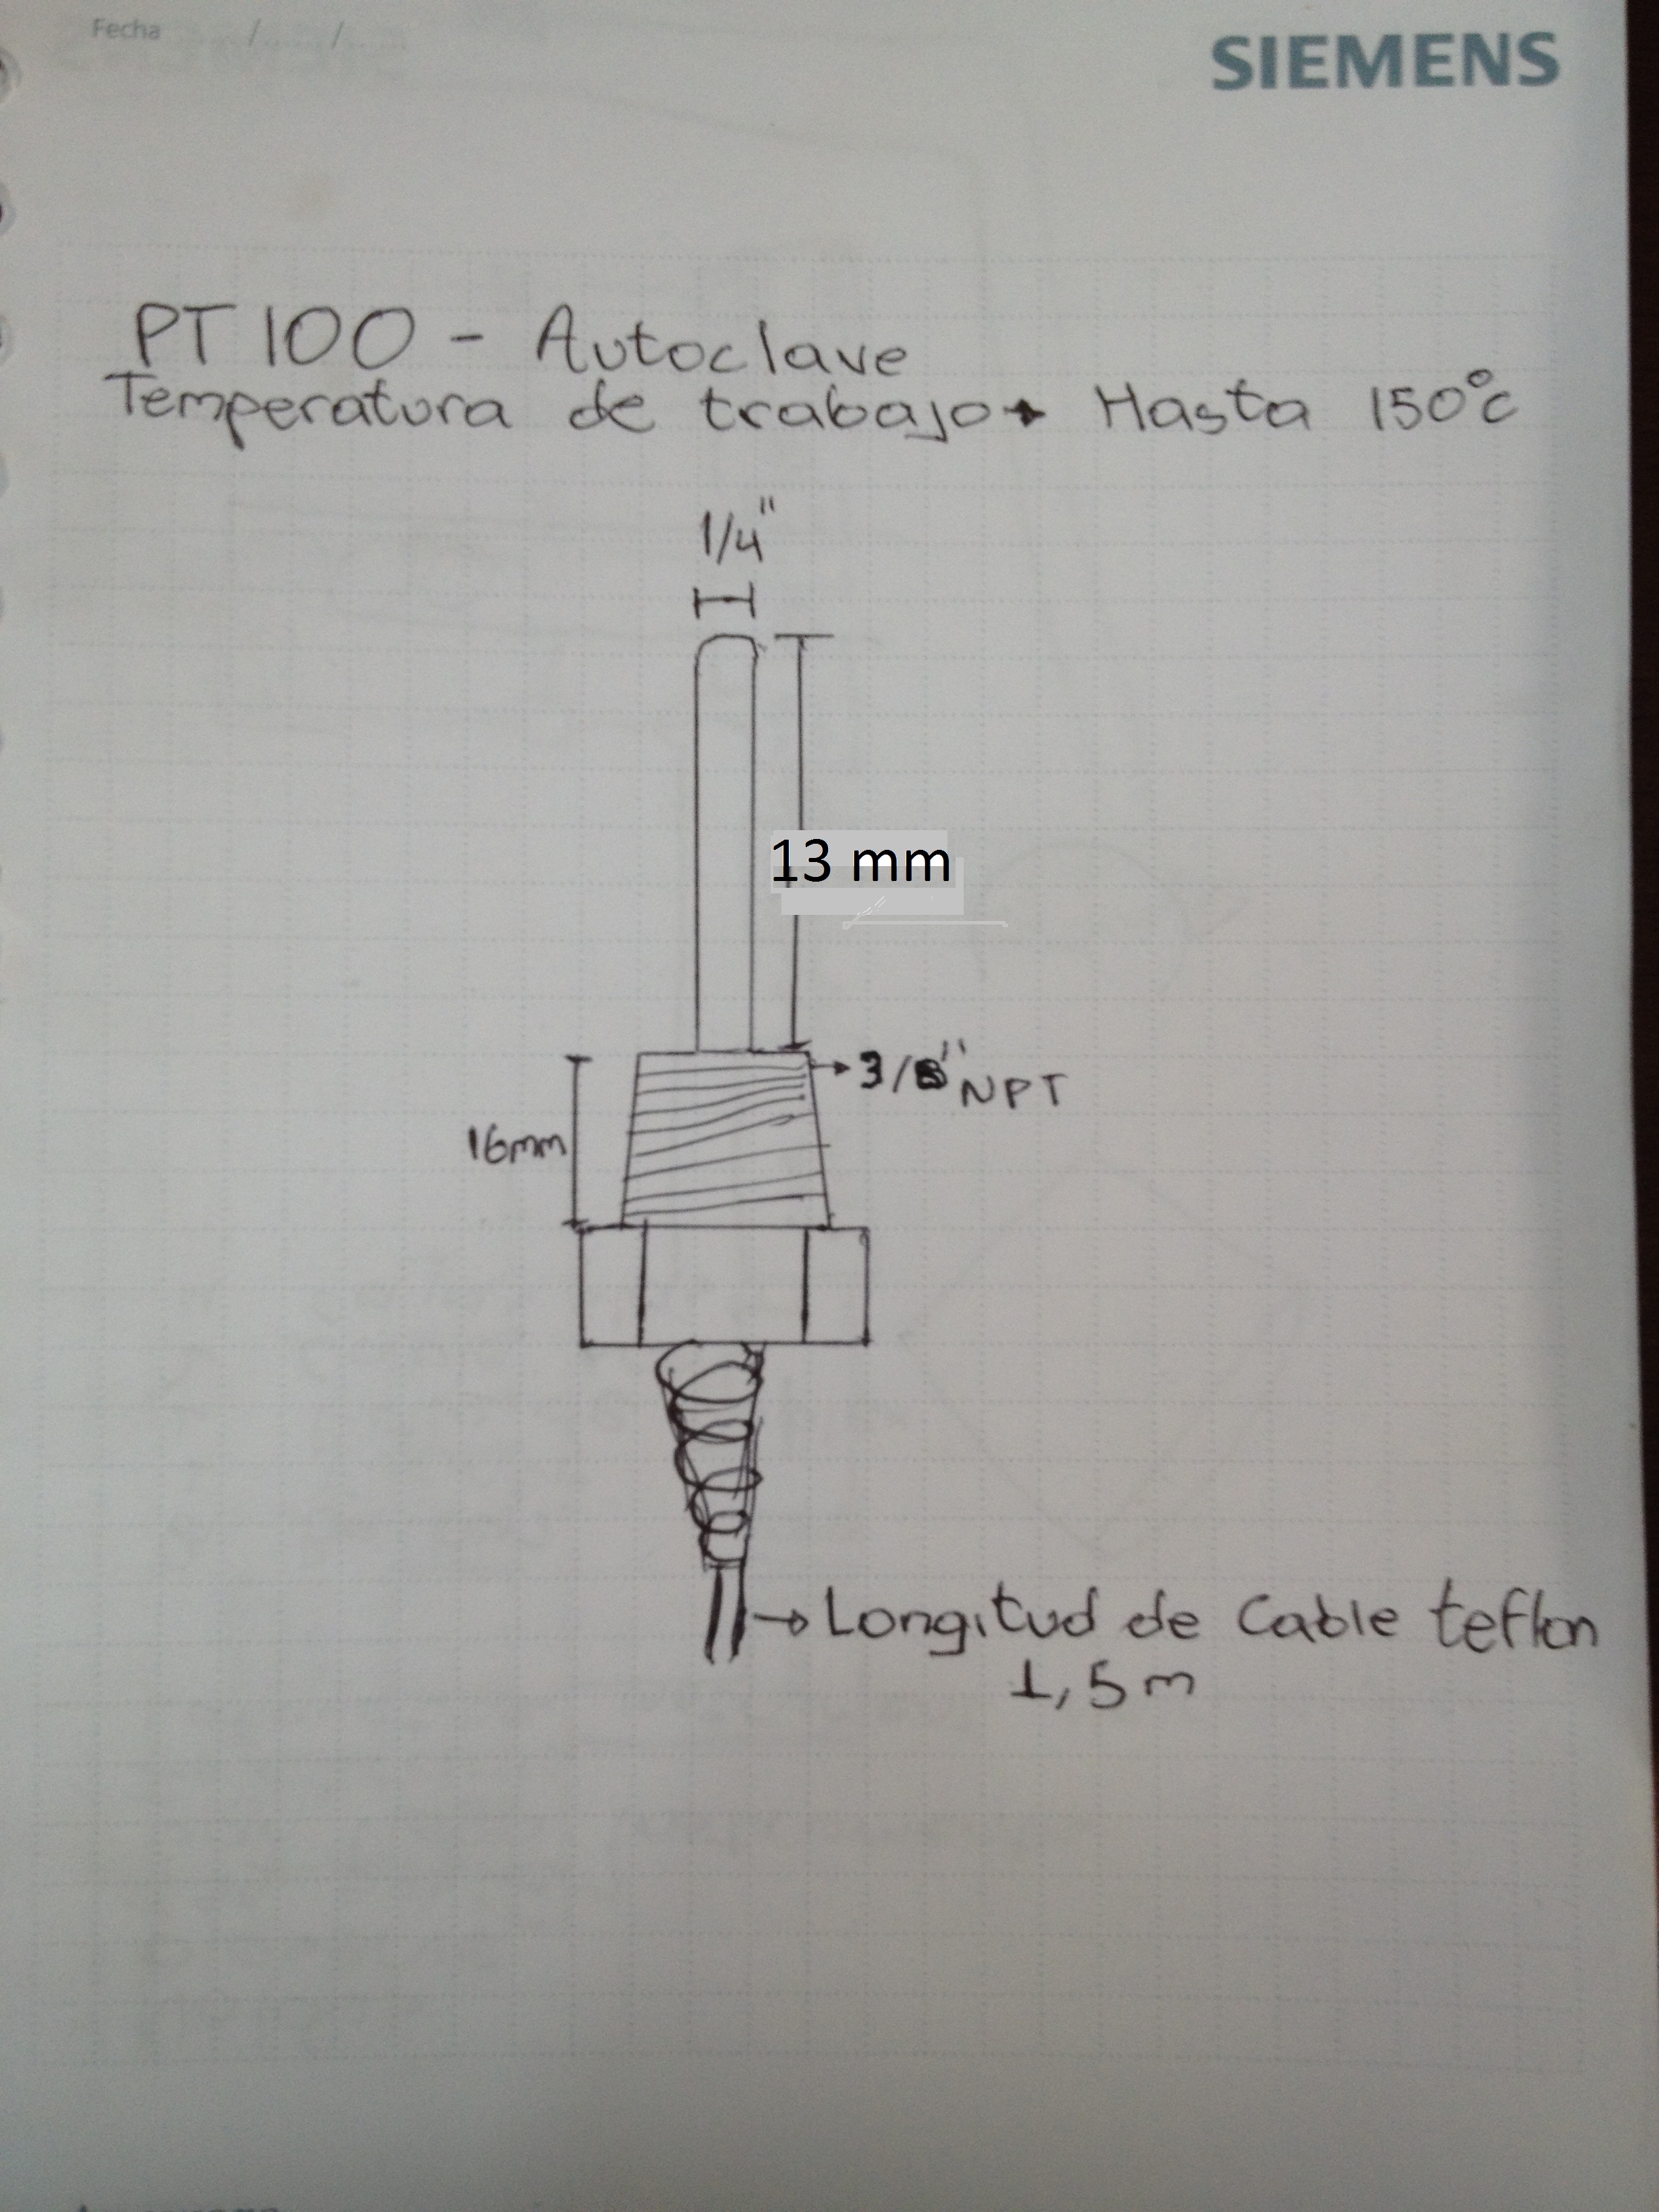 Fecha / /
SIEMENS
PT 100 - Autoclave
Temperatura de trabajo → Hasta 150°c
1/4"
13 mm
→ 3/8" NPT
16mm
→ Longitud de Cable teflon
1,5m